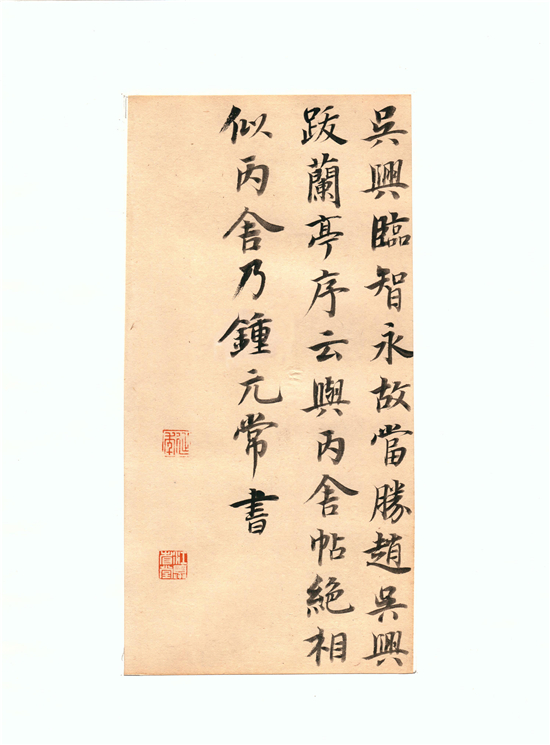 吳興臨智永故當勝趙吳興
跋蘭亭序云與丙舍帖絕相
似丙舍乃鍾元常書